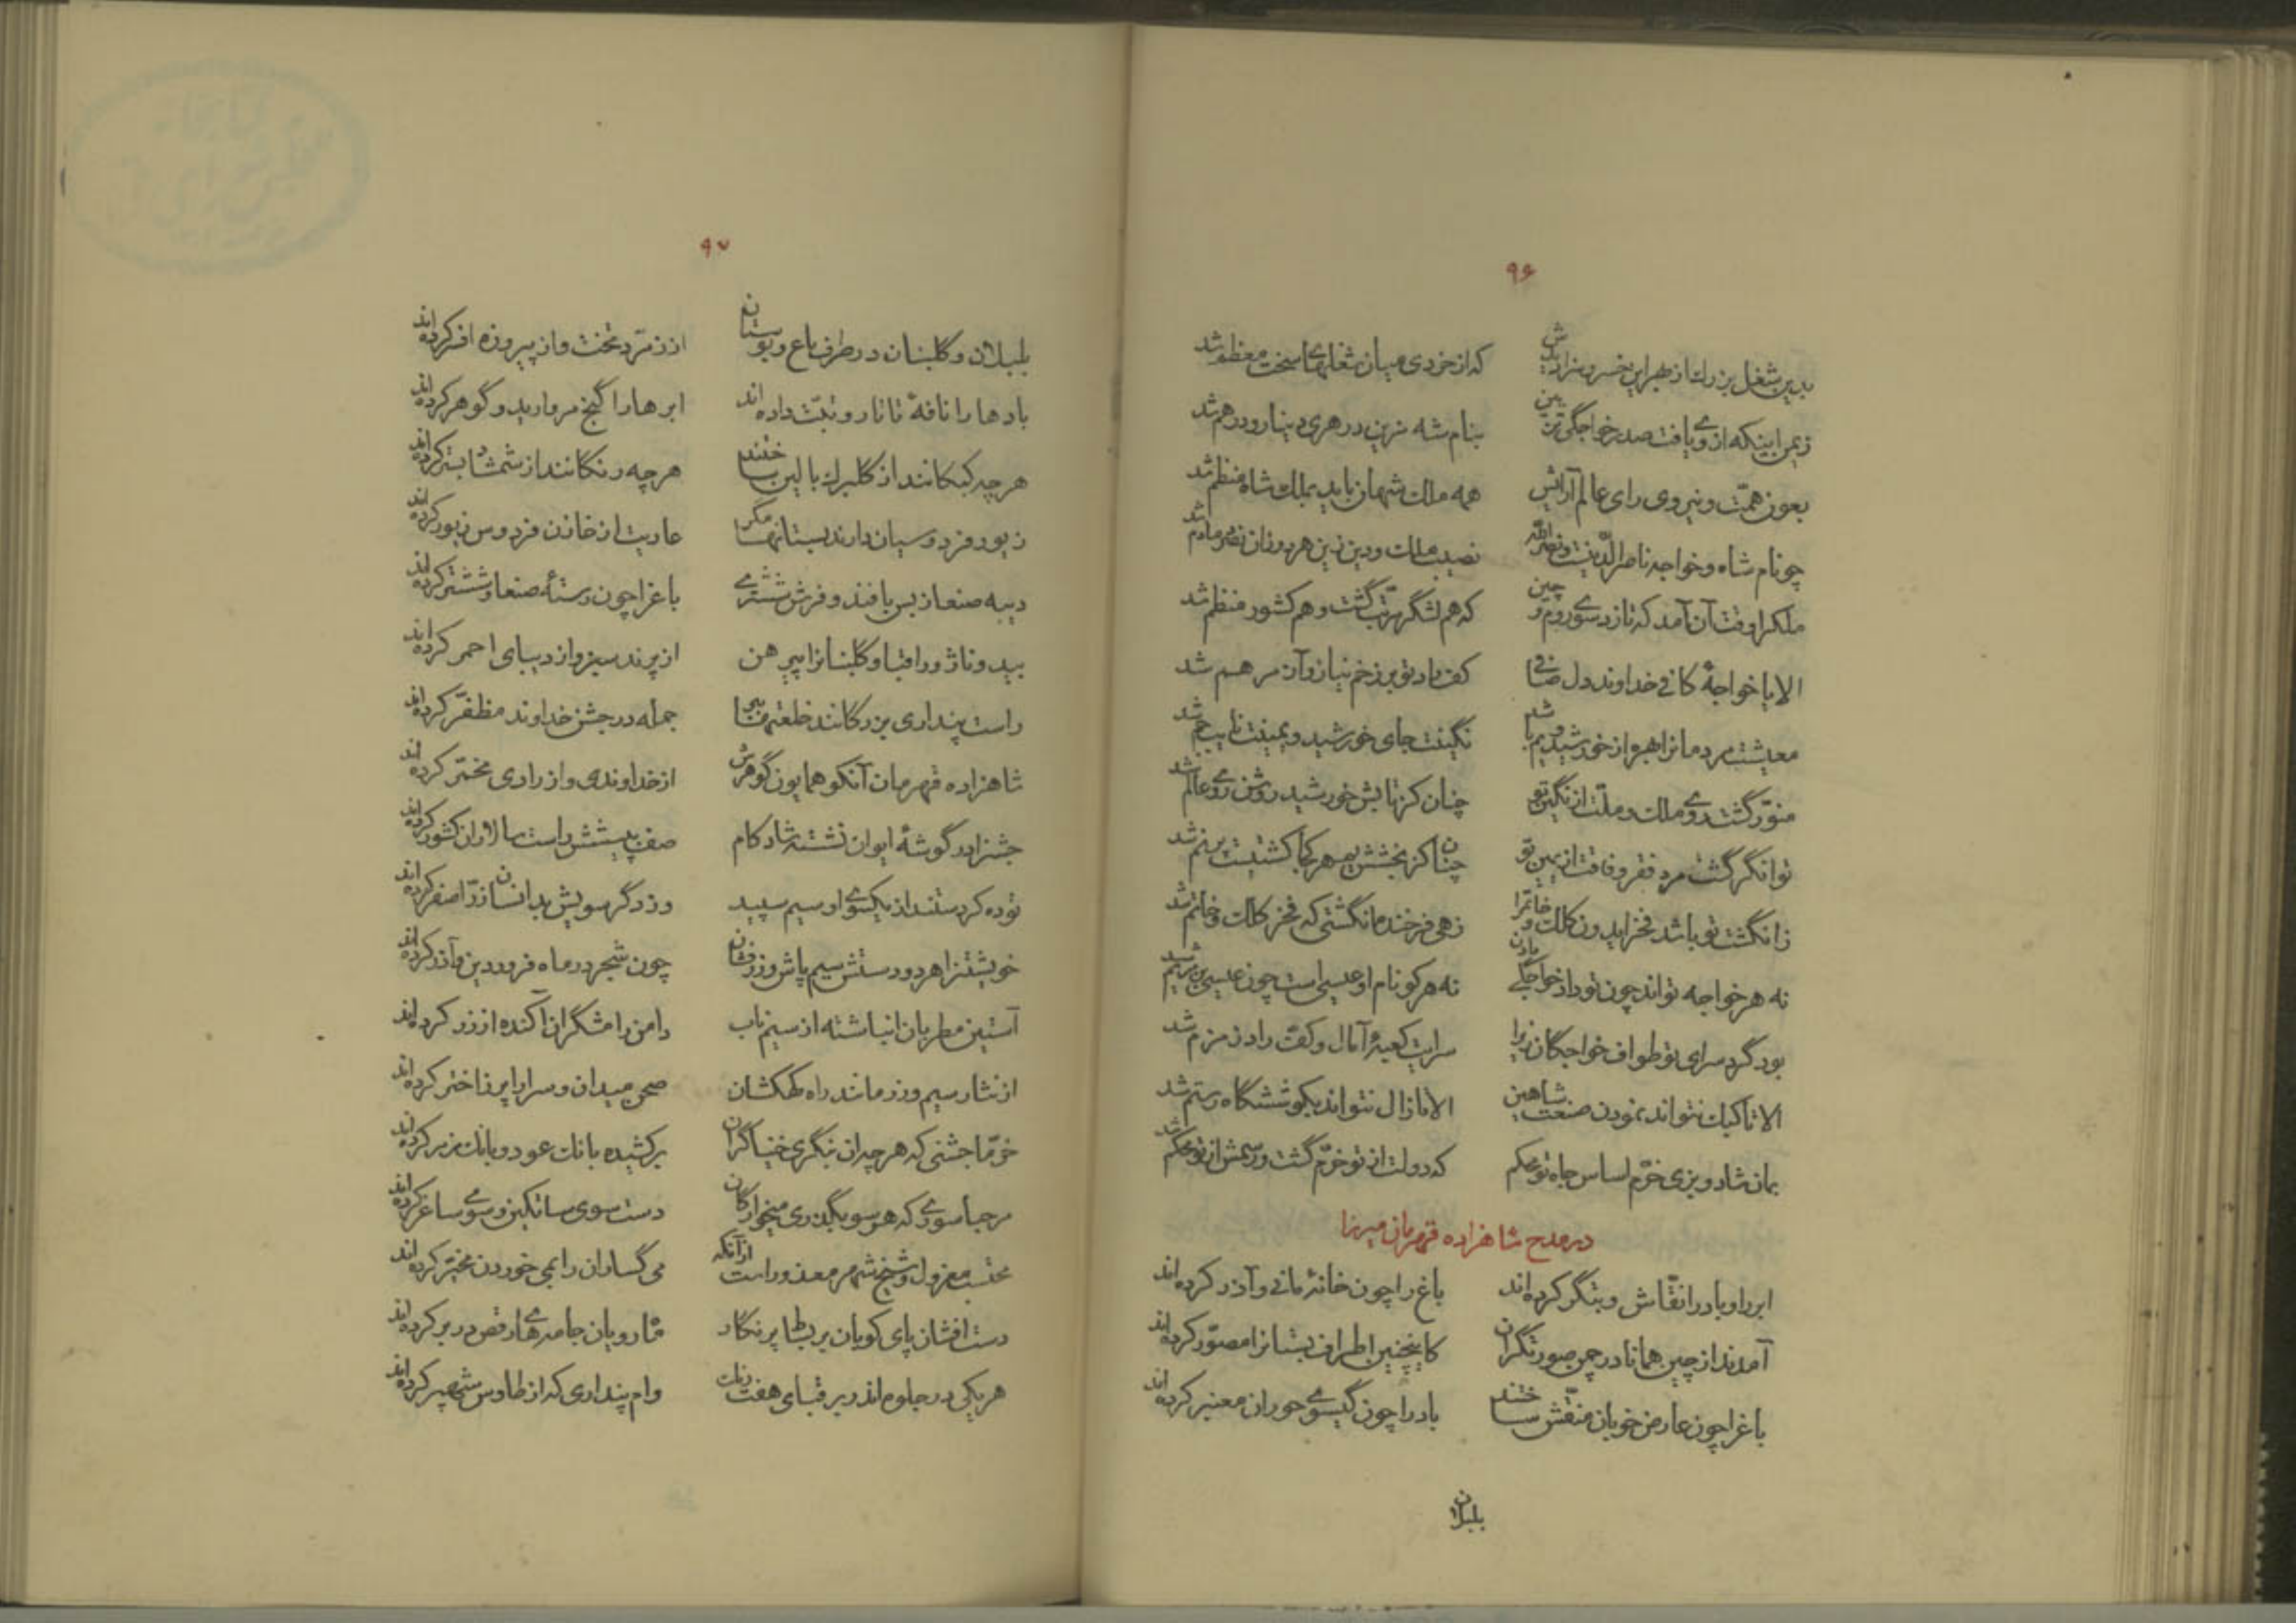 ۹۶
بدین شغل بزرك از بهر این خسرو سزایدش که از خردی میان شغلهای سخت معظم شد
زیمن اینکه از وی یافت صدر خواجگی تزیین بنام شه مزین در هری دینار و درهم شد
بعون همّت و نیروی رای عالم آرایش همه ملك شهان باید بملك شاه منظم شد
چو نام شاه و خواجه ناصر الدّینست و نصر الله نصیب ملك و دین زین هر دوزان نصر مادم شد
ملکرا وقت آن آمد که تازد سوی روم و چین که هم لشگر مرتّب گشت و هم کشور منظم شد
الا یا خواجهٔ کافی خداوند دل صافی کف راد تو بر زخم نیاز و آز مرهم شد
معیشت مردمانرا بهره از خورشید و یم باشد نگینت جای خورشید و یمینت نایب یم شد
منوّر گشت روی ملك و ملّت از نگین تو چنان کز تابش خورشید روشن روی عالم شد
توانگر گشت مرد فقر و فاقت از یمین تو چنان کز بخشش یم هر کجا کشتیست پر نم شد
زانگشت تو باشد فخر ایدون کلك و خاتم را زهی فرخنده انگشتی که فخر کلك و خاتم شد
نه هر خواجه تواند چون تو داد خواجگی دادن نه هر کو نام او عیسی است چون عیسی بن مریم شد
بود گرد سرای تو طواف خواجگان زیرا سرایت کعبهٔ آمال و کفّت راد زمزم شد
الا تا کبك نتواند نمودن صنعت شاهین الا تا زال نتواند بکوششگاه رستم شد
بمان شاد و بزی خرّم اساس جاه تو محکم که دولت از تو خرّم گشت و رسمش از تو محکم شد
در مدح شاهزاده قهرمان میرزا
ابر را و باد را نقّاش و بتگر کرده‌اند باغ را چون خانهٔ مانی و آذر کرده‌اند
آمدند از چین همانا در چمن صورتگران کاینچنین اطراف بستانرا مصوّر کرده‌اند
باغرا چون عارض خوبان منقّش ساختند باد را چون گیسوی حوران معنبر کرده‌اند
بلبلان
۹۷
بلبلان و گلبنان در طرف باغ و بوستان از زمرّد تخت و از پیروزه افسر کرده‌اند
بادها را نافهٔ تاتار و تبّت داده‌اند ابرها را گنج مروارید و گوهر کرده‌اند
هر چه کبکانند از گلبرك بالین ساختند هر چه رنگانند از شمشاد بستر کرده‌اند
زیور فردوسیان دارند بستانها مگر عاریت از خازن فردوس زیور کرده‌اند
دیبه صنعا ز بس بافند و فرش ششتری باغرا چون رستهٔ صنعا و ششتر کرده‌اند
بید و ناژو را قبا و گلبنانرا پیرهن از پرند سبز و از دیبای احمر کرده‌اند
راست پنداری بزرگانند خلعتها بتن جمله در جشن خداوند مظفّر کرده‌اند
شاهزاده قهرمان آنکو همایون گوهرش از خداوندی و از رادی مخمّر کرده‌اند
جشنرا در گوشهٔ ایوان نشسته شادکام صف به پیشش راست سالاران کشور کرده‌اند
توده کردستند از یکسوی او سیم سپید وز دگر سویش بدانسان زرّ اصفر کرده‌اند
خویشتنرا هر دو دستش سیم پاش و زر فشان چون شجر در ماه فروردین و آذر کرده‌اند
آستین مطربان انباشته از سیم ناب دامن رامشگران آکنده از زر کرده‌اند
از نثار سیم و زر مانند راه کهکشان صحن میدان و سرا را پر ز اختر کرده‌اند
خرّما جشنی که هر چه از بنگری خنیاگران برکشیده بانك عود و بانك مزمر کرده‌اند
مرحبا سوری که هر سو بگذری میخوارگان دست سوی ساتکین و سوی ساغر کرده‌اند
محتسب معزول و شیخ شهر معذور است از آنکه می گساران را بمی خوردن مخیّر کرده‌اند
دست افشان پای کوبان بر بساط پر نگار ماه رویان جامه‌های رقص در بر کرده‌اند
هر یکی در جلوه اندر بر قبای هفت رنك وام پنداری که از طاوس شهپر کرده‌اند